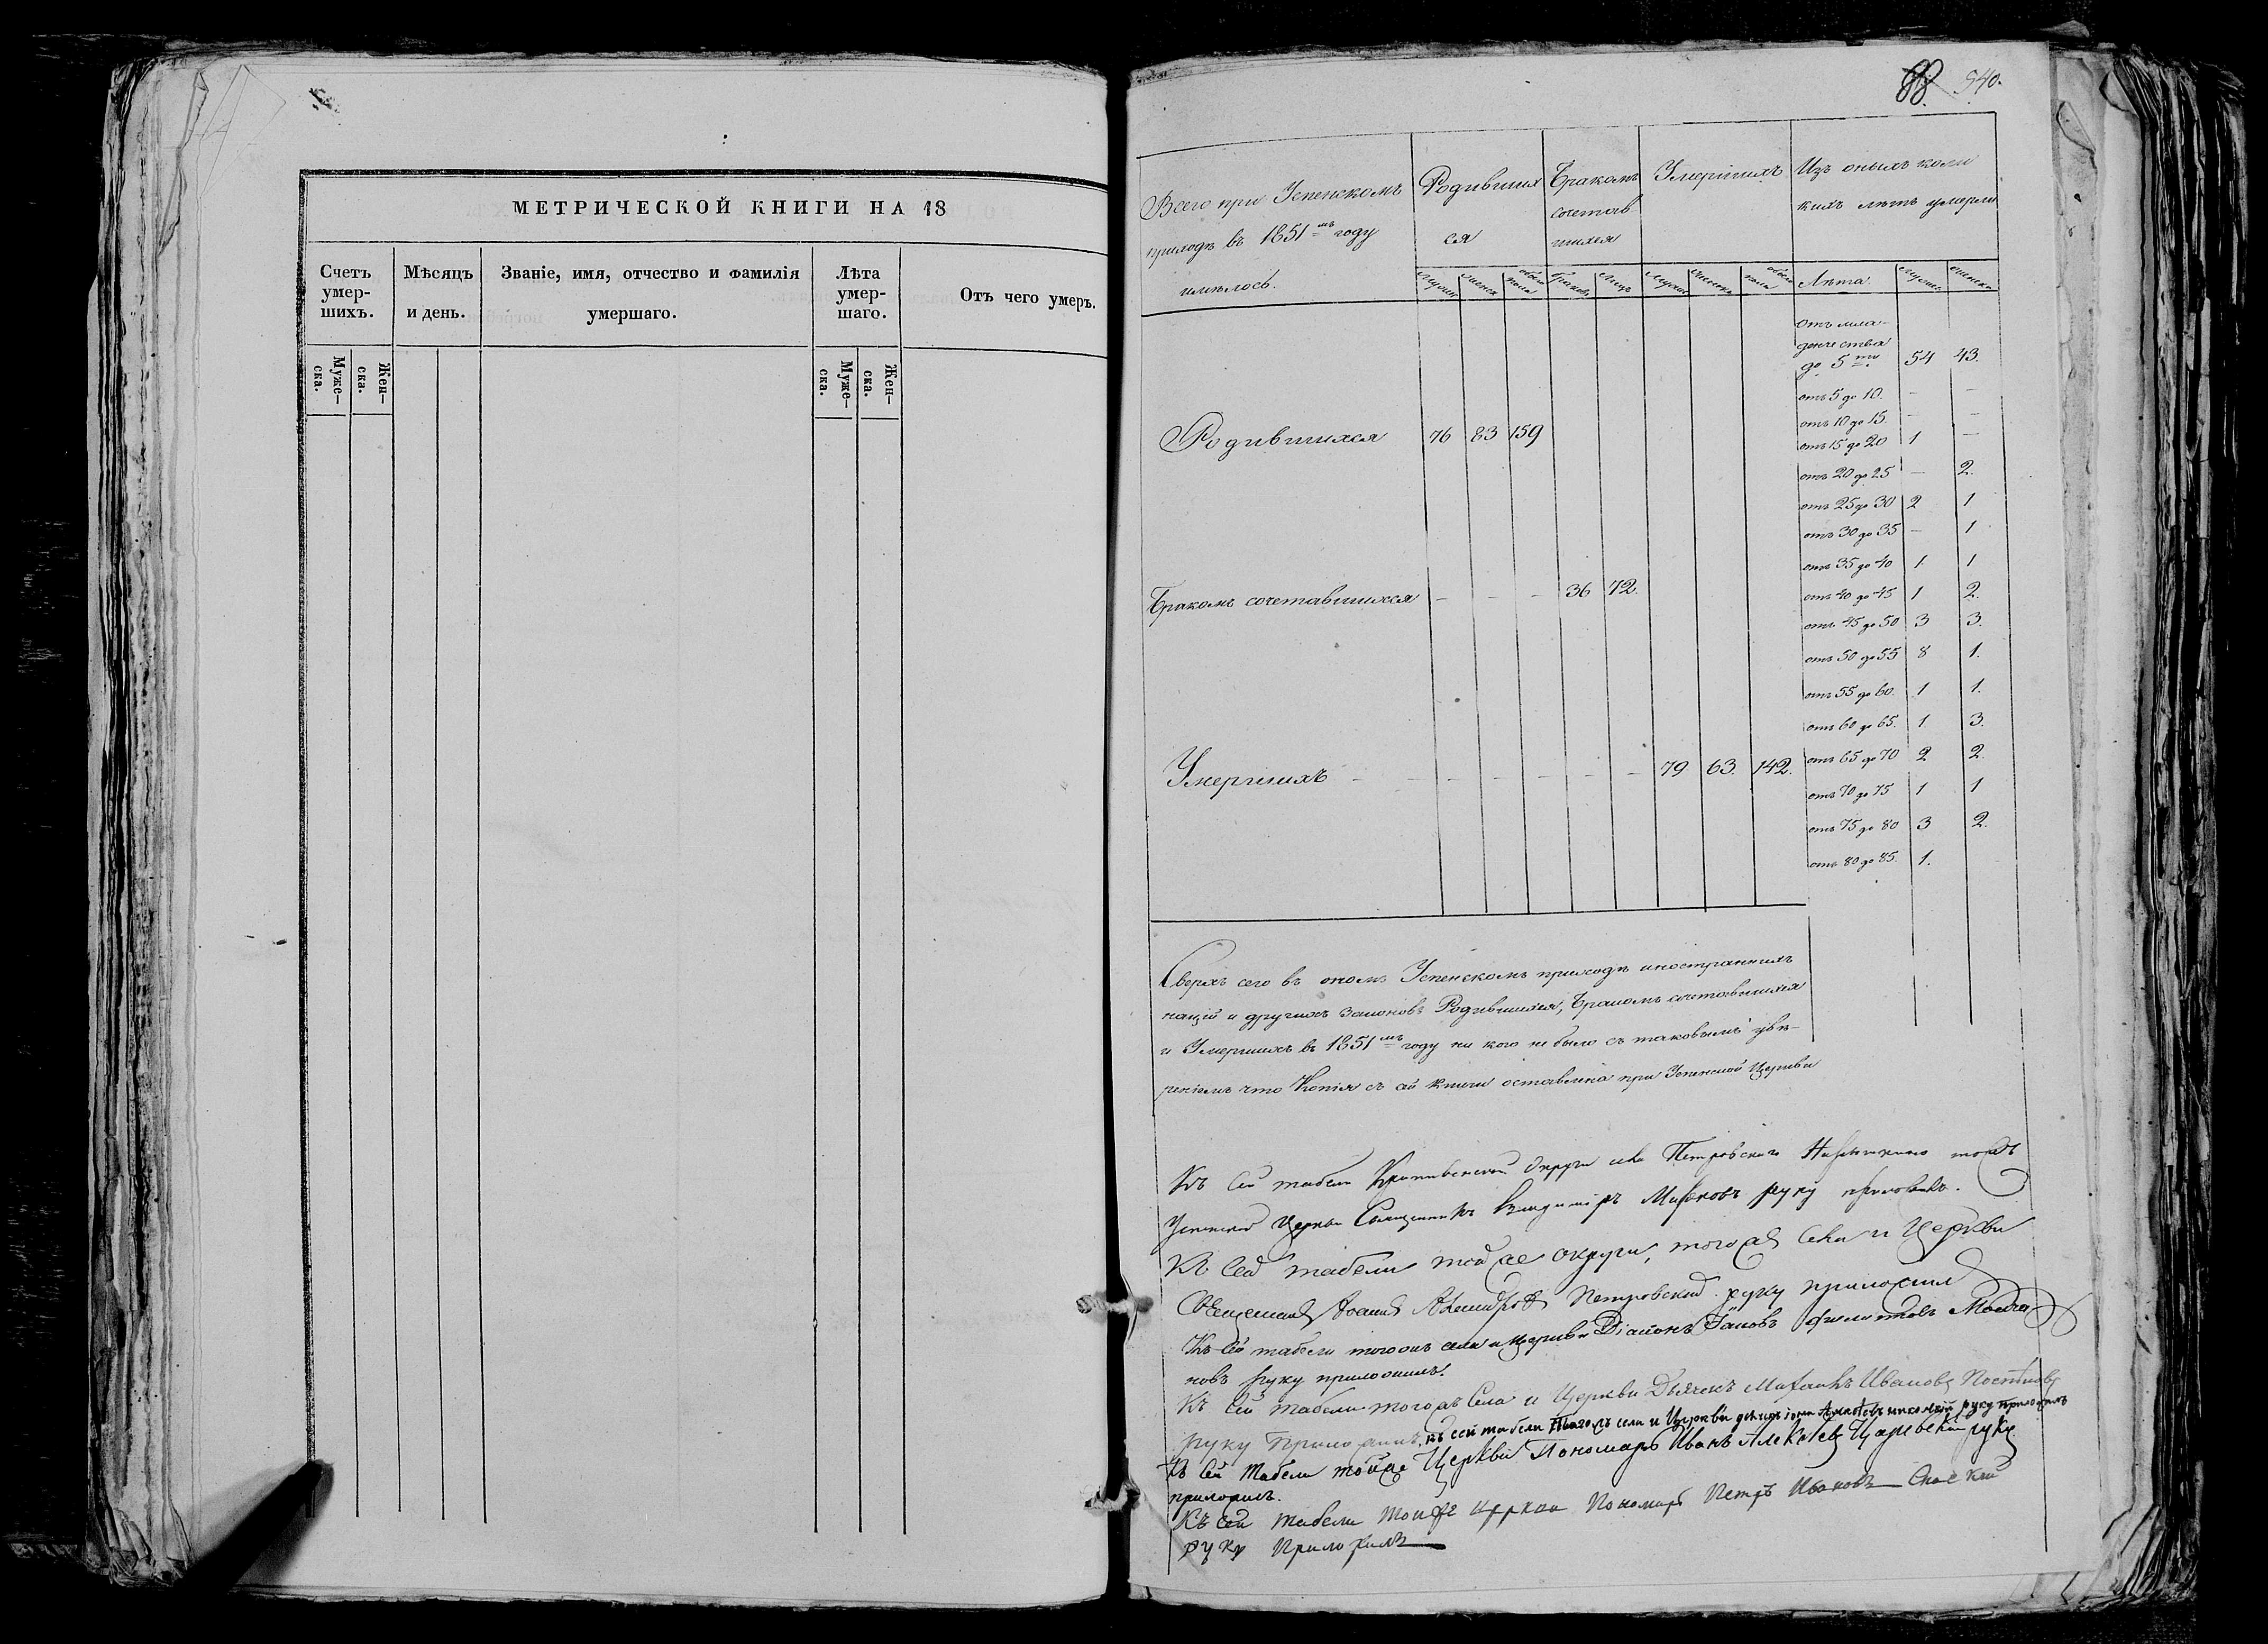 МЕТРИЧЕСКОЙ КНИГИ НА 18
Счетъ умер-шихъ.
Мѣсяцъ и день.
Званіе, имя, отчество и фамилія умершаго.
Лѣта умер-шаго.
Отъ чего умеръ.
Муже-ска.
Жен-ска.
Муже-ска.
Жен-ска.
88. 540.
Всего при Успенскомъ
приходѣ въ 1851мъ году
имѣлось.
Родивших
ся
Бракомъ
сочетав
шихся
Умершихъ
Изъ оныхъ коли
кихъ лѣтъ умерли
Лѣта
отъ мла-
денчества
до 5ти 54 43.
отъ 5 до 10. — —
отъ 10 до 15. — —
Родившихся 76 83 159
отъ 15 до 20 1 —
отъ 20 до 25 — 2.
отъ 25 до 30 2 1
отъ 30 до 35 — 1
отъ 35 до 40 1 1
Бракомъ сочетавшихся — — — 36 72.
отъ 40 до 45 1 2.
отъ 45 до 50 3 3.
отъ 50 до 55 8 1.
отъ 55 до 60. 1 1.
отъ 60 до 65. 1. 3.
Умершихъ — — — — — — 79 63. 142.
отъ 65 до 70 2 2.
отъ 70 до 75 1 1
отъ 75 до 80 3 2.
отъ 80 до 85. 1.
Сверхъ сего въ ономъ Успенскомъ приходѣ иностранныхъ
націй и другихъ законовъ Родившихся, Бракомъ сочетавшихся
и Умершихъ въ 1851мъ году ни кого не было съ таковымъ увѣ-
реніемъ что Копія съ сей книги оставлена при Успенской Церкви
Къ сей табели округи села Петровскаго тожъ
Успенской Церкви Священникъ Владиміръ руку приложилъ.
Къ сей табели той же округи, того же села и Церкви
Священникъ Петровскій руку приложилъ
Къ сей табели того жъ села и Церкви Діаконъ
новъ руку приложилъ.
Къ сей табели того жъ села и Церкви Дьячекъ Михаилъ Ивановъ
руку приложилъ, къ сей табели того жъ села и Церкви руку приложилъ
Къ сей табели той же Церкви Пономарь Иванъ Алексѣевъ руку
приложилъ.
Къ сей табели той же Церкви Пономарь Петръ Ивановъ Спаскій
руку приложилъ